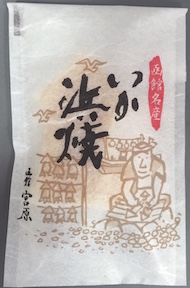 函館名産
いか
浜焼
宮原